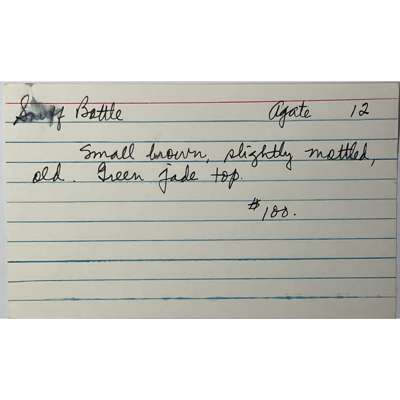 Snuff Bottle Agate 12
Small brown, slightly mottled,
old. Green jade top.
$100.